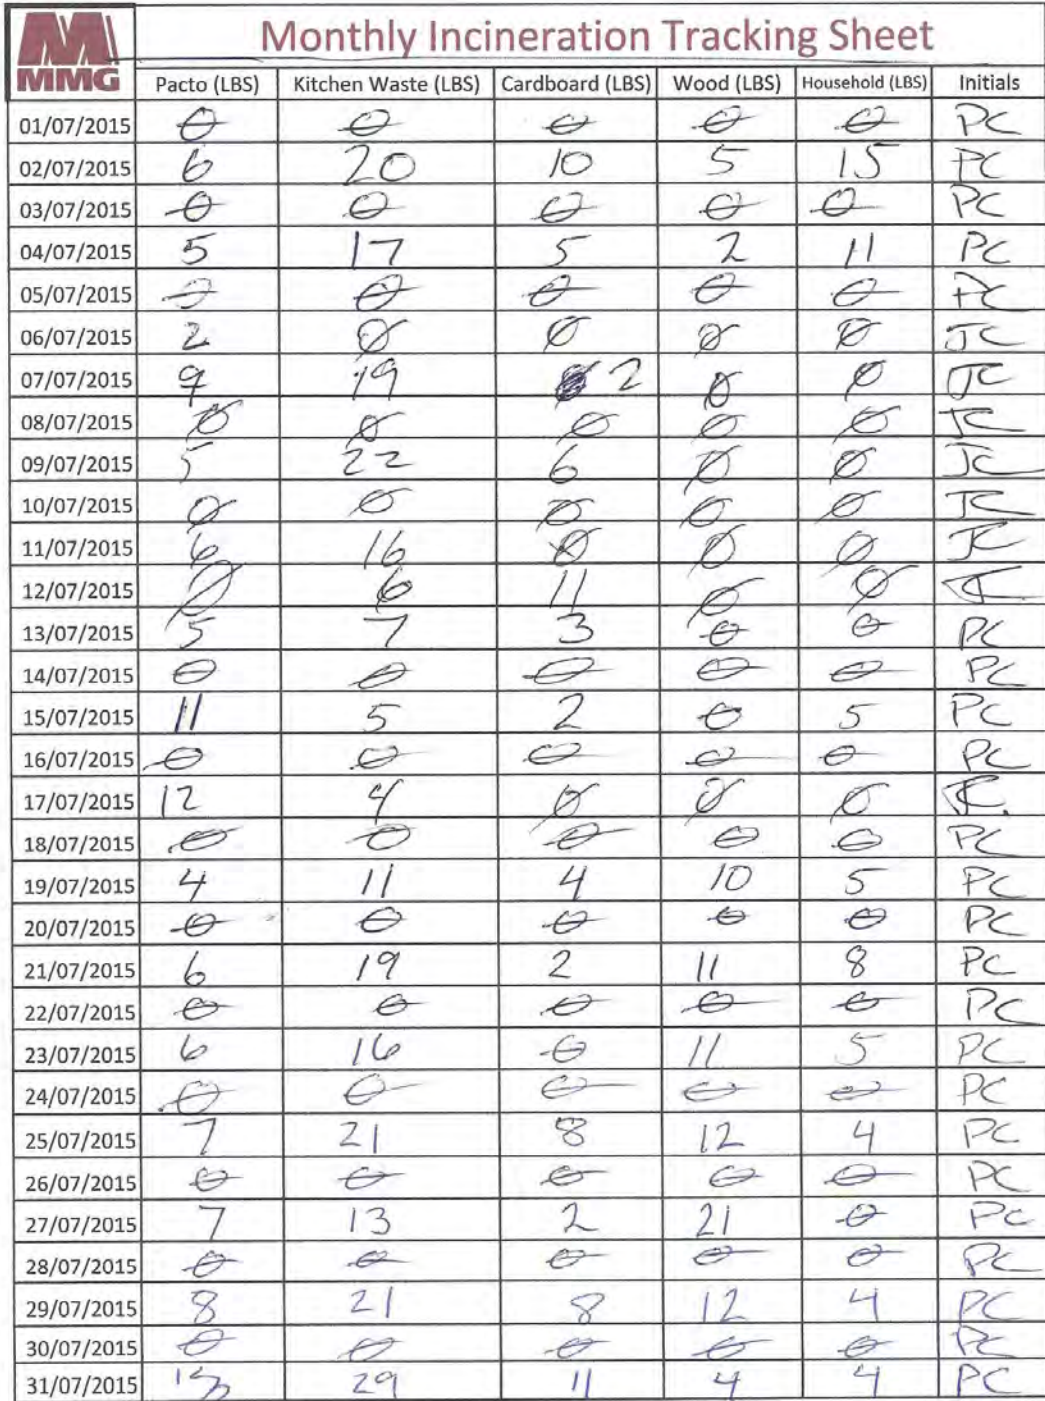 MMG
Monthly Incineration Tracking Sheet
Pacto (LBS) Kitchen Waste (LBS) Cardboard (LBS) Wood (LBS) Household (LBS) Initials
01/07/2015 0 0 0 0 0 PC
02/07/2015 6 20 10 5 15 PC
03/07/2015 0 0 0 0 0 PC
04/07/2015 5 17 5 2 11 PC
05/07/2015 0 0 0 0 0 PC
06/07/2015 2 0 0 0 0 JC
07/07/2015 9 19 2 0 0 JC
08/07/2015 0 0 0 0 0 JC
09/07/2015 5 22 6 0 0 JC
10/07/2015 0 0 0 0 0 JC
11/07/2015 6 16 0 0 0 JC
12/07/2015 0 6 11 0 0 JC
13/07/2015 5 7 3 0 0 PC
14/07/2015 0 0 0 0 0 PC
15/07/2015 11 5 2 0 5 PC
16/07/2015 0 0 0 0 0 PC
17/07/2015 12 4 0 0 0 JC.
18/07/2015 0 0 0 0 0 PC
19/07/2015 4 11 4 10 5 PC
20/07/2015 0 0 0 0 0 PC
21/07/2015 6 19 2 11 8 PC
22/07/2015 0 0 0 0 0 PC
23/07/2015 6 16 0 11 5 PC
24/07/2015 0 0 0 0 0 PC
25/07/2015 7 21 8 12 4 PC
26/07/2015 0 0 0 0 0 PC
27/07/2015 7 13 2 21 0 PC
28/07/2015 0 0 0 0 0 PC
29/07/2015 8 21 8 12 4 PC
30/07/2015 0 0 0 0 0 PC
31/07/2015 29 11 4 4 PC